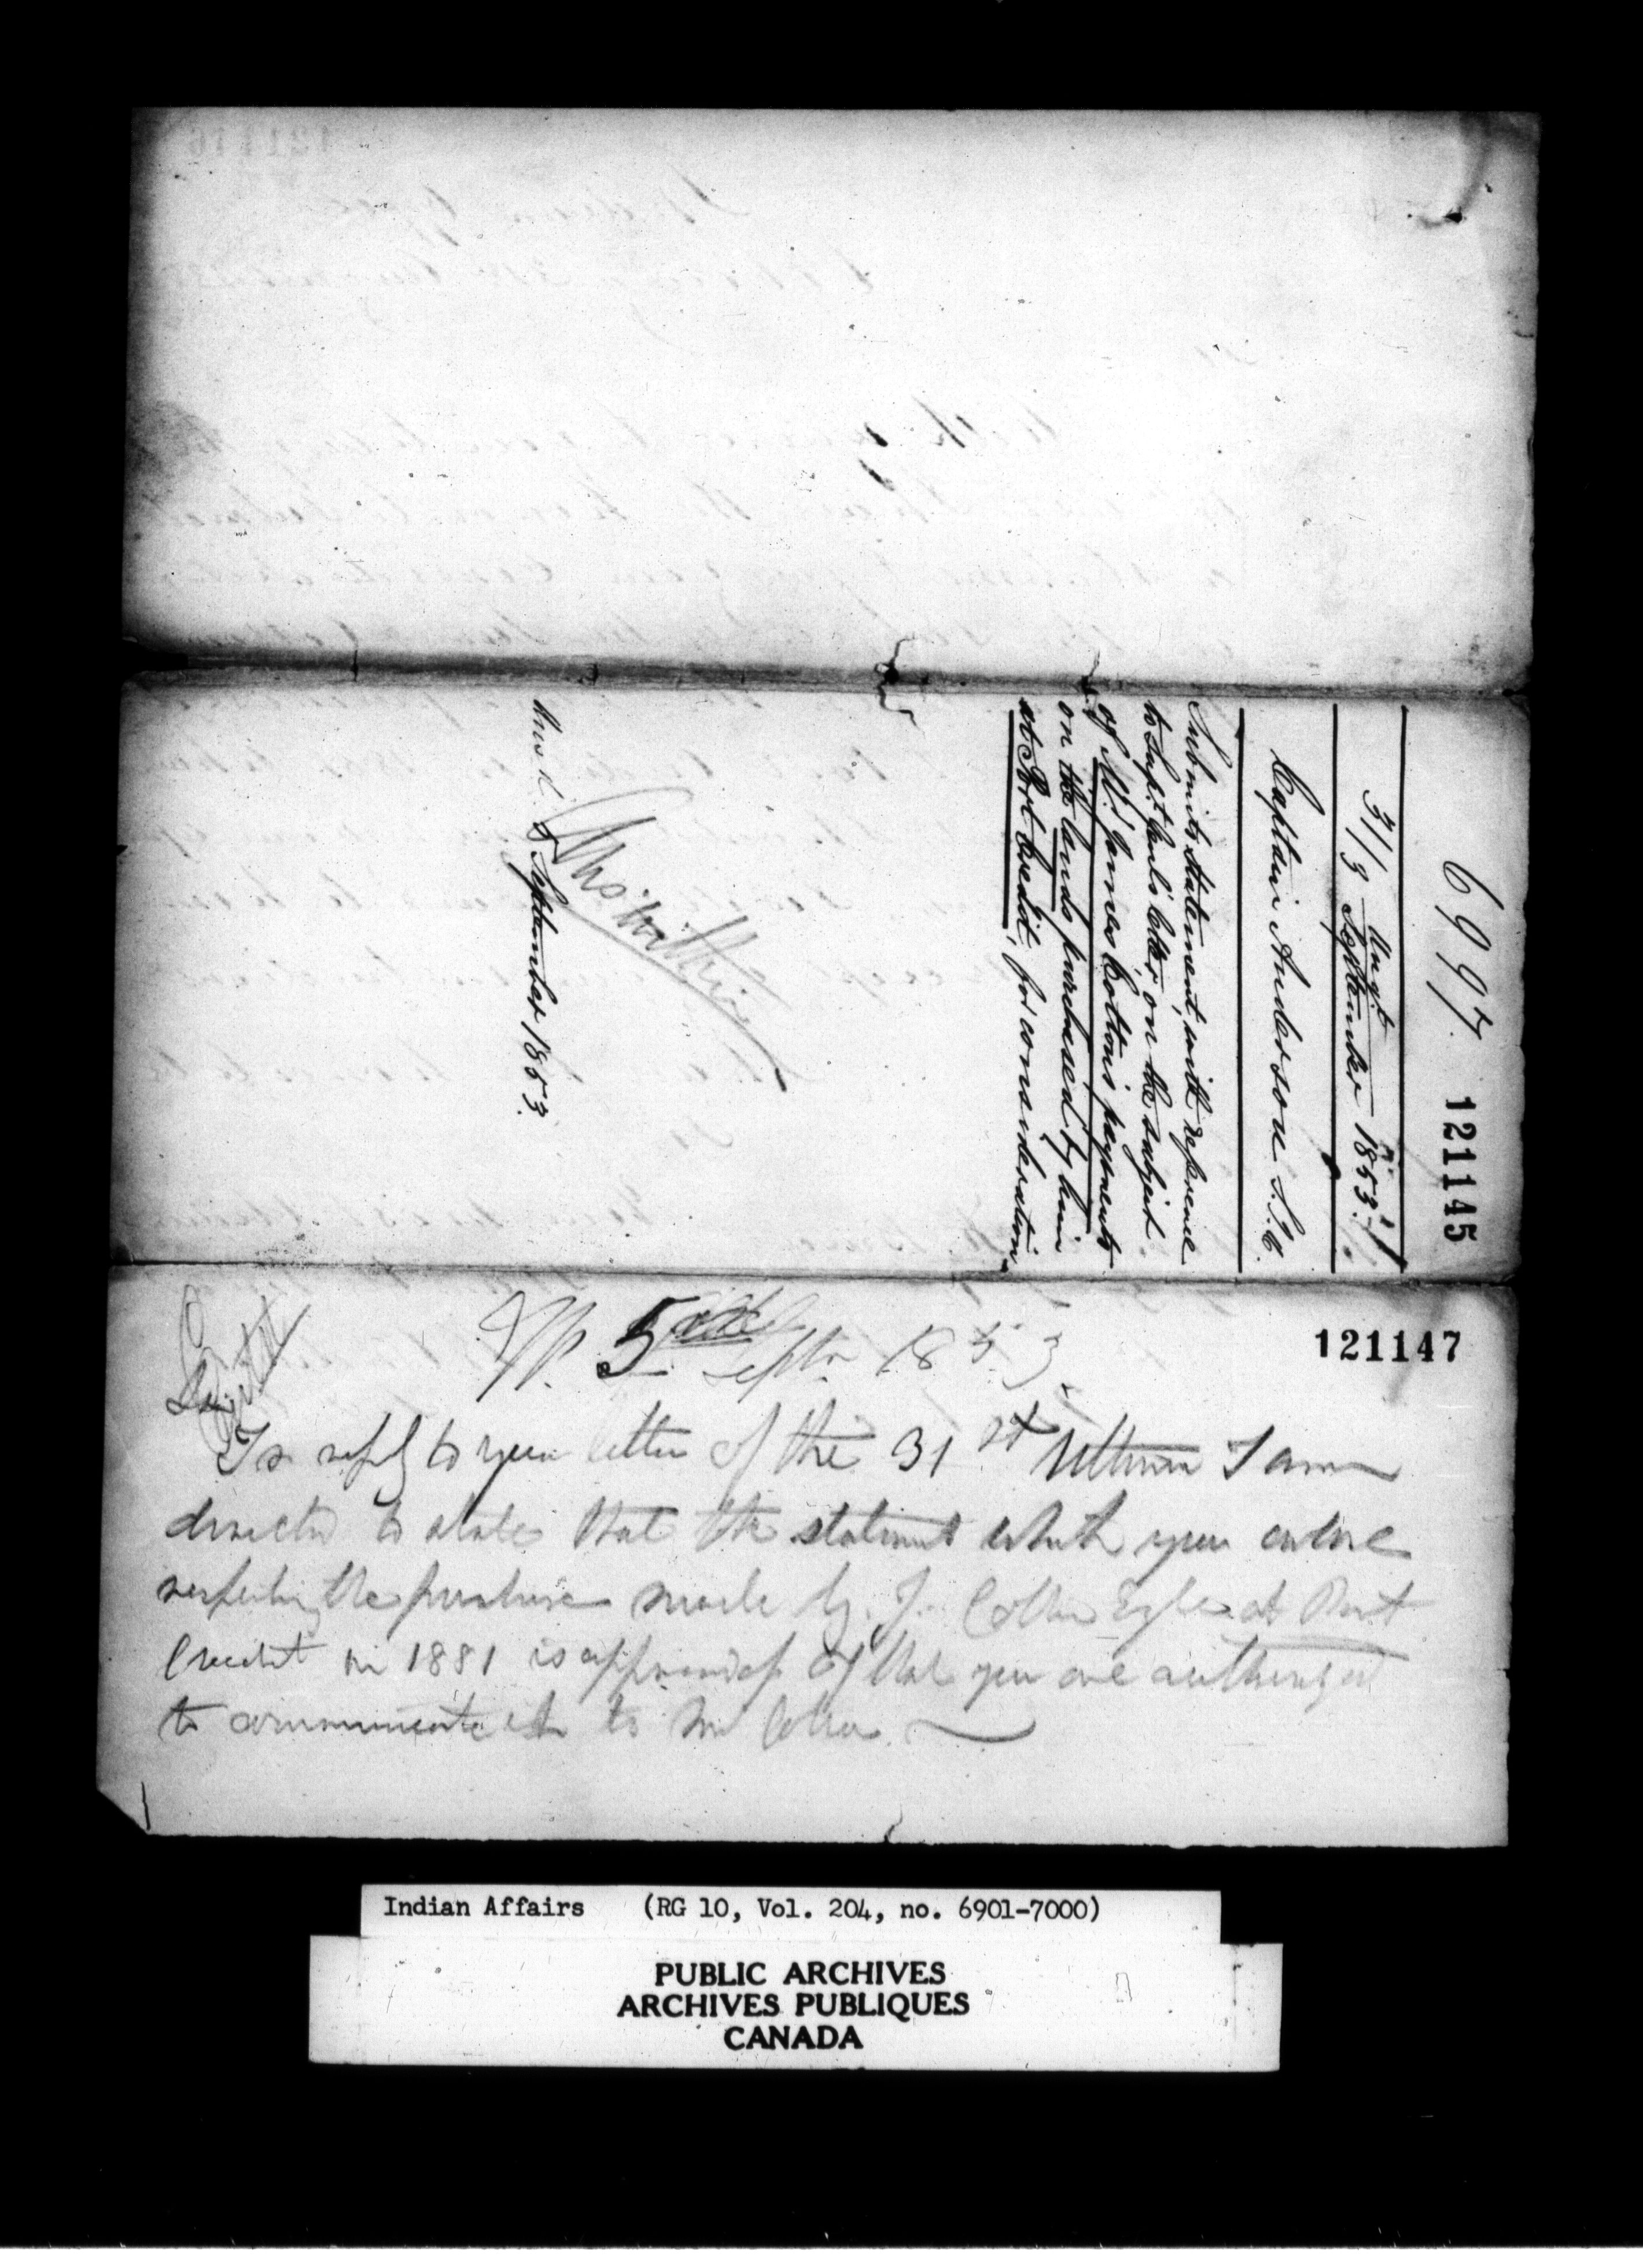 6997.
121145
31/3 Augt September 1853.
Captain Anderson S.I.A.
Submits Statement, with reference
to Supt. letter on the subject
of Mr James Cotton's payments
on the lands purchased by him
at Port Credit, for consideration
Answ'd 5 September 1853.
121147
5 Septr 1853.
Sir
In reply to your letter of the 31st Ultimo I am
directed to state that the statement which you enclose
respecting the purchase made by J. Cotton Esqre at Port
Credit in 1881 is approved of & that you are authorized
to communicate it to Mr Cotton.
Indian Affairs (RG 10, Vol. 204, no. 6901-7000)
PUBLIC ARCHIVES
ARCHIVES PUBLIQUES
CANADA